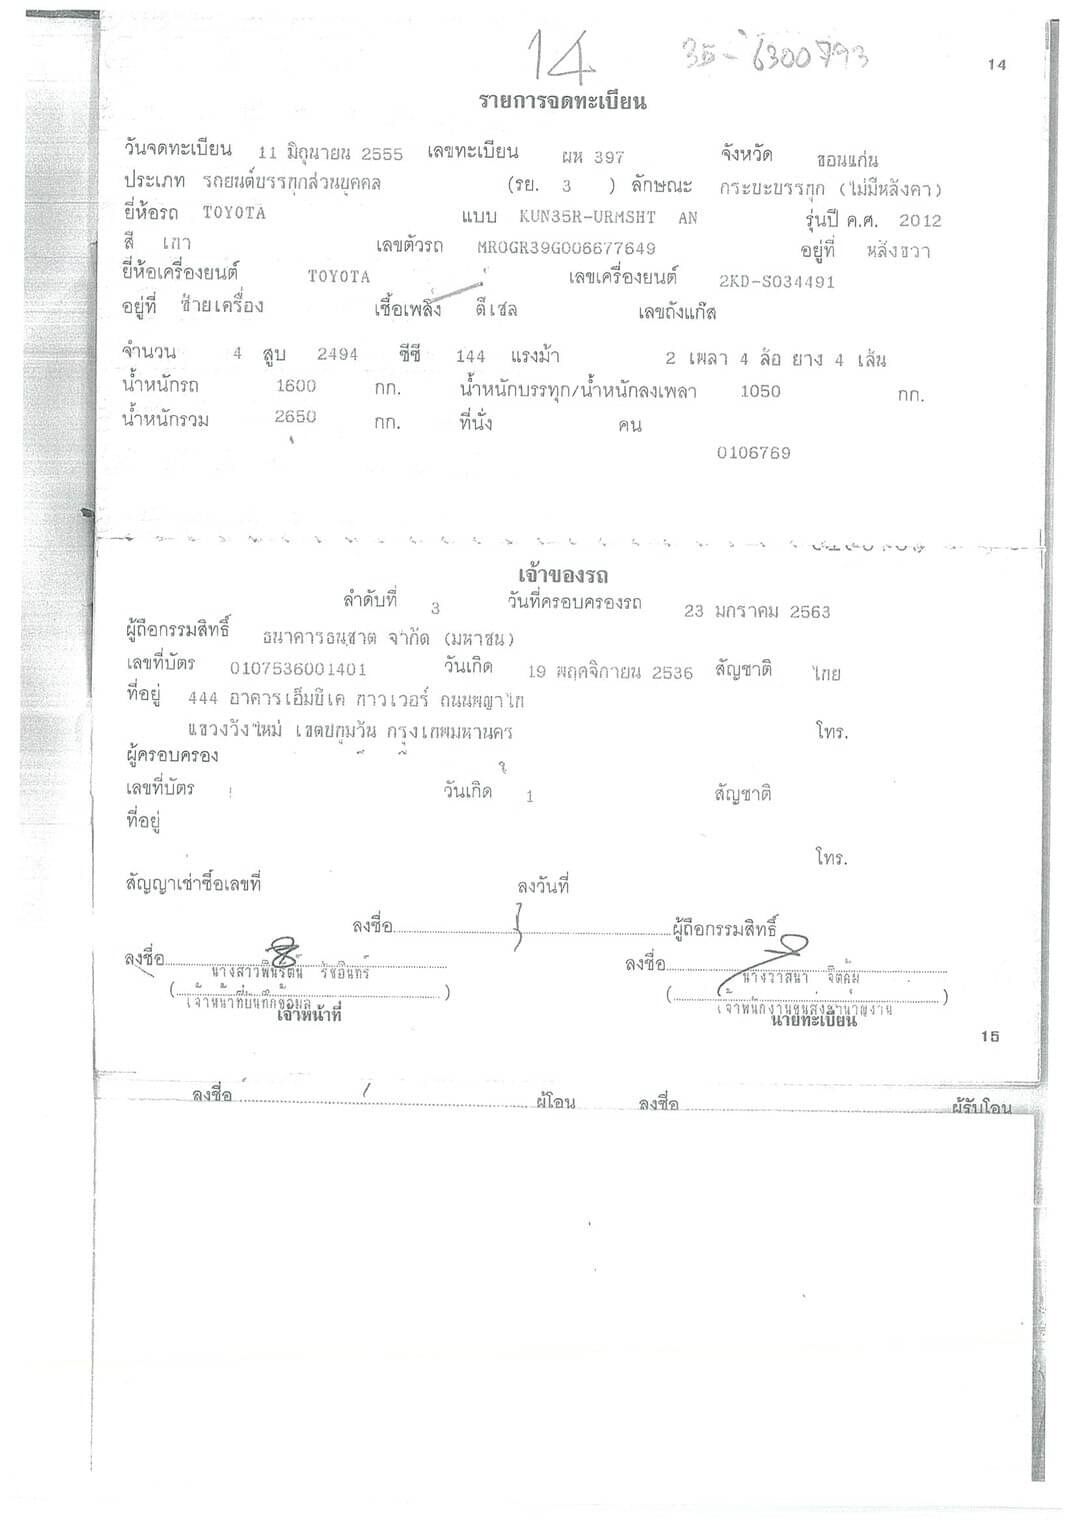 14 35-6300793 14
รายการจดทะเบียน
วันจดทะเบียน 11 มิถุนายน 2555 เลขทะเบียน ผห 397 จังหวัด ขอนแก่น
ประเภท รถยนต์บรรทุกส่วนบุคคล (รย. 3 ) ลักษณะ กระบะบรรทุก (ไม่มีหลังคา)
ยี่ห้อรถ TOYOTA แบบ KUN35R-URMSHT AN รุ่นปี ค.ศ. 2012
สี เทา เลขตัวรถ MR0GR39G006677649 อยู่ที่ หลังขวา
ยี่ห้อเครื่องยนต์ TOYOTA เลขเครื่องยนต์ 2KD-S034491
อยู่ที่ ซ้ายเครื่อง เชื้อเพลิง ดีเซล เลขถังแก๊ส
จำนวน 4 สูบ 2494 ซีซี 144 แรงม้า 2 เพลา 4 ล้อ ยาง 4 เส้น
น้ำหนักรถ 1600 กก. น้ำหนักบรรทุก/น้ำหนักลงเพลา 1050 กก.
น้ำหนักรวม 2650 กก. ที่นั่ง คน
0106769
เจ้าของรถ
ลำดับที่ 3 วันที่ครอบครองรถ 23 มกราคม 2563
ผู้ถือกรรมสิทธิ์ ธนาคารธนชาต จำกัด (มหาชน)
เลขที่บัตร 0107536001401 วันเกิด 19 พฤศจิกายน 2536 สัญชาติ ไทย
ที่อยู่ 444 อาคารเอ็มบีเค ทาวเวอร์ ถนนพญาไท
แขวงวังใหม่ เขตปทุมวัน กรุงเทพมหานคร โทร.
ผู้ครอบครอง
เลขที่บัตร วันเกิด 1 สัญชาติ
ที่อยู่
โทร.
สัญญาเช่าซื้อเลขที่ ลงวันที่
ลงชื่อ ผู้ถือกรรมสิทธิ์
ลงชื่อ ลงชื่อ
นางสาวพินรัตน์ รัชอินทร์ นางวาสนา จิตคุ้ม
(เจ้าหน้าที่บันทึกข้อมูล) (เจ้าพนักงานขนส่งชำนาญงาน)
เจ้าหน้าที่ นายทะเบียน
15
ลงชื่อ ผู้โอน ลงชื่อ ผู้รับโอน